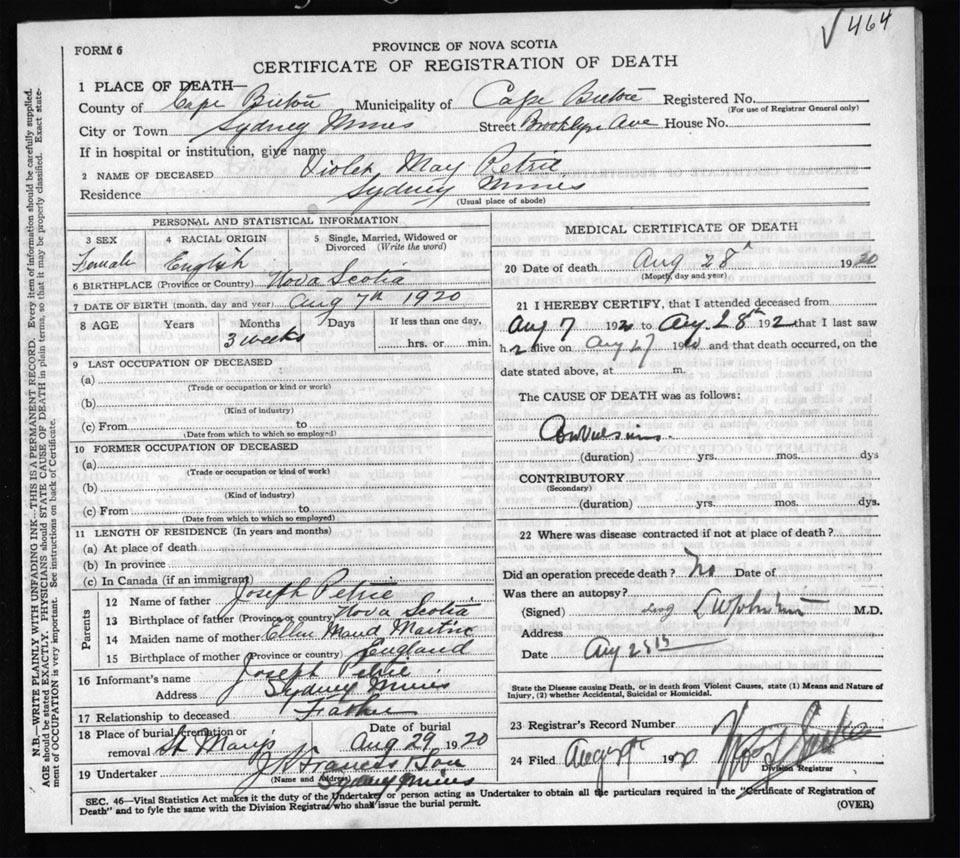 √464
FORM 6
PROVINCE OF NOVA SCOTIA
CERTIFICATE OF REGISTRATION OF DEATH
1 PLACE OF DEATH—
County of Cape Breton Municipality of Cape Breton Registered No.
(For use of Registrar General only)
City or Town Sydney Mines Street Brooklyn Ave House No.
If in hospital or institution, give name
2 NAME OF DECEASED Violet May Petrie
Residence Sydney Mines
(Usual place of abode)
PERSONAL AND STATISTICAL INFORMATION
3 SEX Female
4 RACIAL ORIGIN English
5 Single, Married, Widowed or Divorced (Write the word)
6 BIRTHPLACE (Province or Country) Nova Scotia
7 DATE OF BIRTH (month, day and year) Aug 7th 1920
8 AGE Years Months Days If less than one day,
3 weeks hrs. or min.
9 LAST OCCUPATION OF DECEASED
(a)
(Trade or occupation or kind or work)
(b)
(Kind of industry)
(c) From to
(Date from which to which so employed)
10 FORMER OCCUPATION OF DECEASED
(a)
(Trade or occupation or kind of work)
(b)
(Kind of industry)
(c) From to
(Date from which to which so employed)
11 LENGTH OF RESIDENCE (In years and months)
(a) At place of death
(b) In province
(c) In Canada (if an immigrant)
Parents
12 Name of father Joseph Petrie
13 Birthplace of father (Province or country) Nova Scotia
14 Maiden name of mother Ellen Maud Martin
15 Birthplace of mother (Province or country) England
16 Informant's name Joseph Petrie
Address Sydney Mines
17 Relationship to deceased Father
18 Place of burial, cremation or removal St. Mary's
Date of burial Aug 29 1920
19 Undertaker J. W. Francis & Son
(Name and Address) Sydney Mines
MEDICAL CERTIFICATE OF DEATH
20 Date of death Aug 28 1920
(Month, day and year)
21 I HEREBY CERTIFY, that I attended deceased from
Aug 7 1920 to Aug 28th 192 that I last saw
h alive on Aug 27 19 and that death occurred, on the
date stated above, at m.
The CAUSE OF DEATH was as follows:
Convulsions
(duration) yrs. mos. dys
CONTRIBUTORY
(Secondary)
(duration) yrs. mos. dys.
22 Where was disease contracted if not at place of death?
Did an operation precede death? No Date of
Was there an autopsy?
(Signed) M.D.
Address
Date Aug 28th
State the Disease causing Death, or in death from Violent Causes, state (1) Means and Nature of
Injury, (2) whether Accidental, Suicidal or Homicidal.
23 Registrar's Record Number
24 Filed 1920
Division Registrar
SEC. 46—Vital Statistics Act makes it the duty of the Undertaker or person acting as Undertaker to obtain all the particulars required in the "Certificate of Registration of
Death" and to fyle the same with the Division Registrar who shall issue the burial permit.
(OVER)
N.B.—WRITE PLAINLY WITH UNFADING INK—THIS IS A PERMANENT RECORD. Every item of information should be carefully supplied.
AGE should be stated EXACTLY. PHYSICIANS should STATE CAUSE OF DEATH in plain terms, so that it may be properly classified. Exact state-
ment of OCCUPATION is very important. See instructions on back of Certificate.